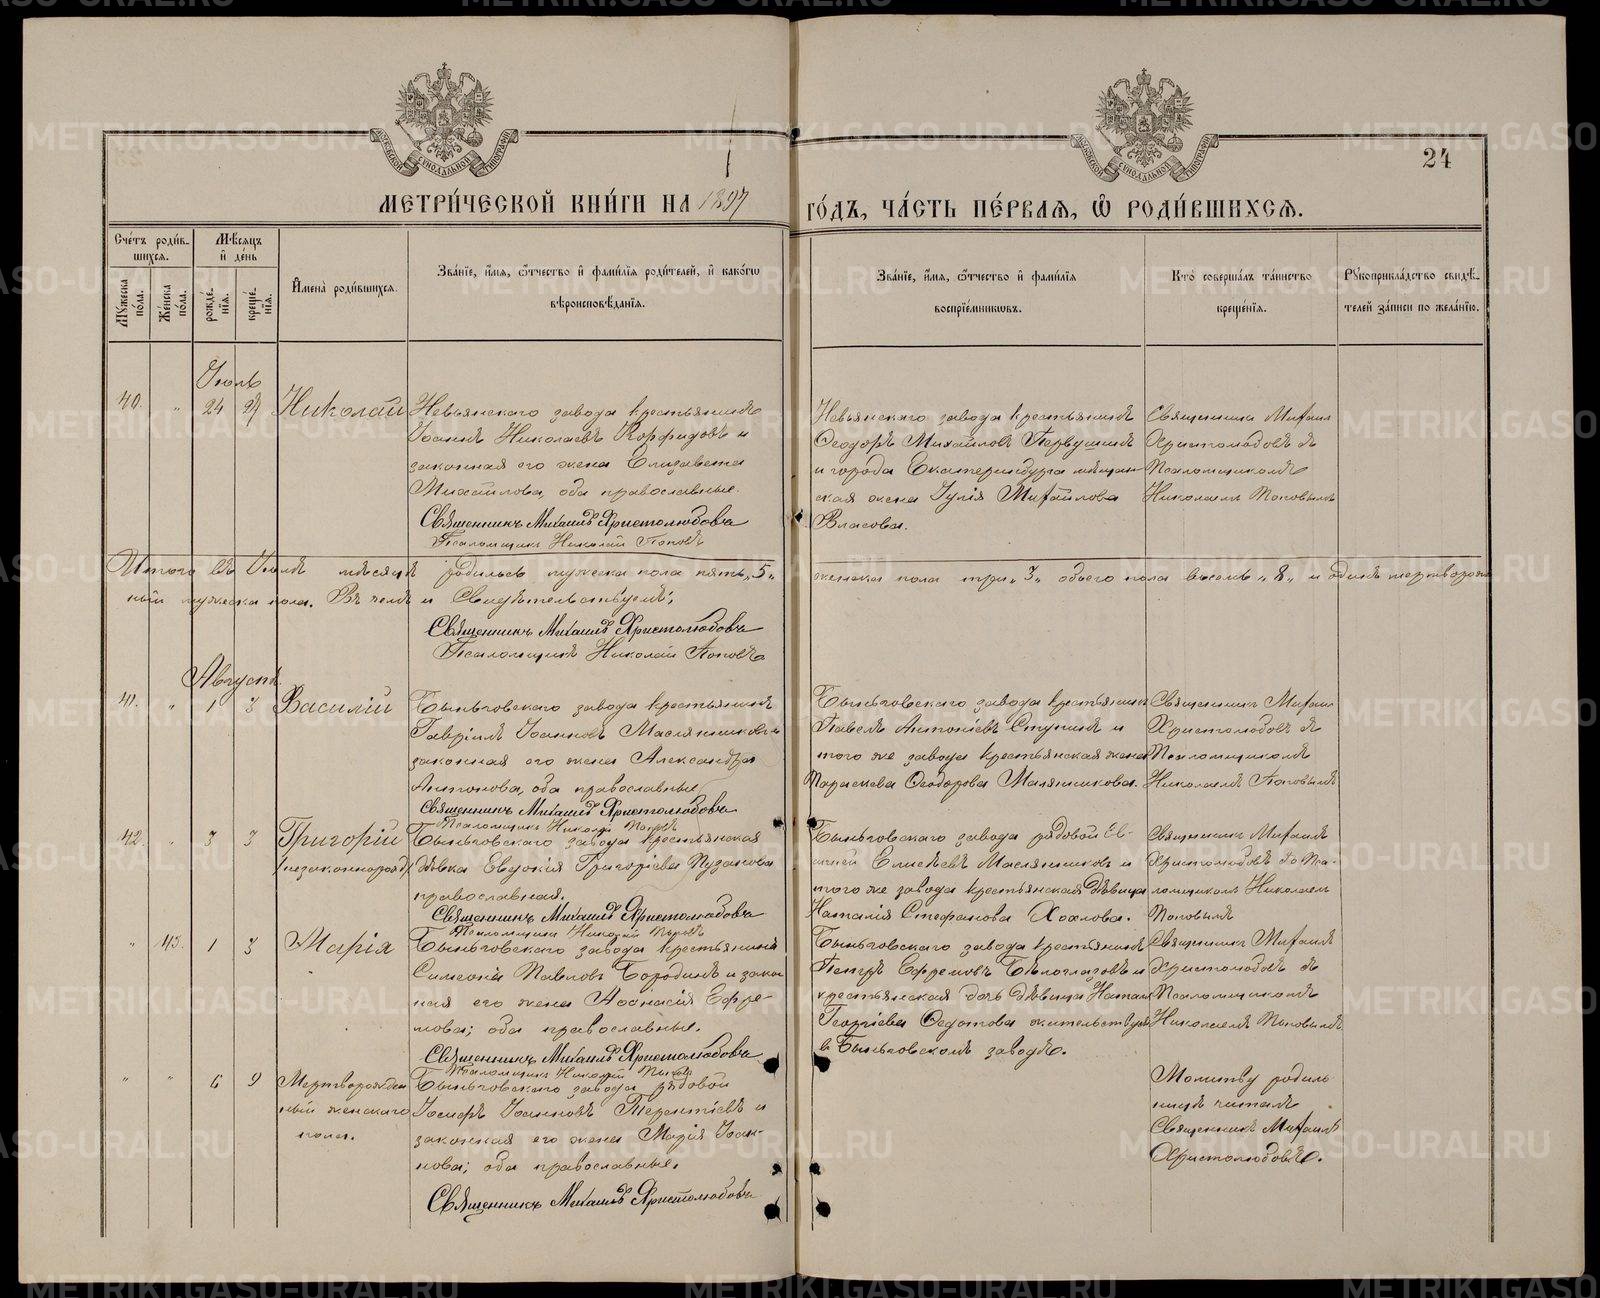 24
МЕТРИ́ЧЕСКОЙ КНИ́ГИ НА 1897 ГО́ДЪ, ЧА́СТЬ ПЕ́РВАЯ, Ѿ РОДИ́ВШИХСЯ.
Сче́тъ роди́в-
шихся.
Мѣ́сяцъ
и҆ де́нь
Мꙋ́жеска по́ла.
Же́нска по́ла.
рожде́-
нїя.
креще́-
нїя.
И҆мена̀ роди́вшихся.
Зва́нїе, и҆́мя, ѻ҆́тчество и҆ фами́лїя роди́телей, и҆ како́гѡ
вѣроисповѣ́данїя.
Зва́нїе, и҆́мя, ѻ҆́тчество и҆ фами́лїя
воспрїе́мникѡвъ.
Кто̀ соверша́лъ та́инство
креще́нїя.
Рꙋкоприкла́дство свидѣ́-
телей за́писи по жела́нїю.
Іюль
40. " 24 27 Николай
Невьянскаго завода крестьянинъ
Іоаннъ Николаевъ Корфидовъ и
законная его жена Елизавета
Михайлова, оба православные.
Священникъ Михаилъ Христолюбовъ
Псаломщикъ Николай Поповъ
Невьянскаго завода крестьянинъ
Ѳеодоръ Михайловъ Первушинъ
и города Екатеринбурга мѣщан-
ская жена Іулія Михайлова
Власова.
Священникъ Михаилъ
Христолюбовъ съ
Псаломщикомъ
Николаемъ Поповымъ
Итого въ Іюлѣ мѣсяцѣ родилось мужеска пола пять „5„ женска пола три „3„ обоего пола восемь „8„ и одинъ мертворожден-
ный мужеска пола. Въ чемъ и свидѣтельствуемъ:
Священникъ Михаилъ Христолюбовъ
Псаломщикъ Николай Поповъ
Августъ.
41. " 1 3 Василій
Быньговскаго завода крестьянинъ
Гавріилъ Іоанновъ Маслянниковъ и
законная его жена Александра
Антонова, оба православные
Священникъ Михаилъ Христолюбовъ
Псаломщикъ Николай Поповъ
Быньговскаго завода крестьянинъ
Павелъ Антоніевъ Ступинъ и
того же завода крестьянская жена
Параскева Ѳеодорова Маслянникова.
Священникъ Михаилъ
Христолюбовъ съ
Псаломщикомъ
Николаемъ Поповымъ
42. " 3 3 Григорій
(незаконнорожд)
Быньговскаго завода крестьянская
дѣвка Евдокія Григоріева Пузанова
православная.
Священникъ Михаилъ Христолюбовъ
Псаломщикъ Николай Поповъ
Быньговскаго завода рядовой Ев-
Елисѣевъ Маслянниковъ и
того же завода крестьянская дѣвица
Наталія Стефанова Хохлова.
Священникъ Михаилъ
Христолюбовъ съ Пса-
ломщикомъ Николаемъ
Поповымъ
" 43. 1 3 Марія
Быньговскаго завода крестьянинъ
Симеонъ Павловъ Бородинъ и закон
ная его жена Аѳанасія Ефре-
мова; оба православные.
Священникъ Михаилъ Христолюбовъ
Псаломщикъ Николай Поповъ
Быньговскаго завода крестьянинъ
Петръ Ефремовъ Бѣлоглазовъ и
крестьянская дочь дѣвица Наталія
Георгіева Ѳедотова жительствующая
въ Быньговскомъ заводѣ.
Священникъ Михаилъ
Христолюбовъ съ
Псаломщикомъ
Николаемъ Поповымъ
" " 6 9 Мертворожден
ный женскаго
пола.
Быньговскаго завода рядовой
Іосифъ Іоанновъ Терентіевъ и
законная его жена Марія Іоан-
нова; оба православные.
Священникъ Михаилъ Христолюбовъ
Молитву родиль
ницѣ читалъ
Священникъ Михаилъ
Христолюбовъ.
METRIKI.GASO-URAL.RU